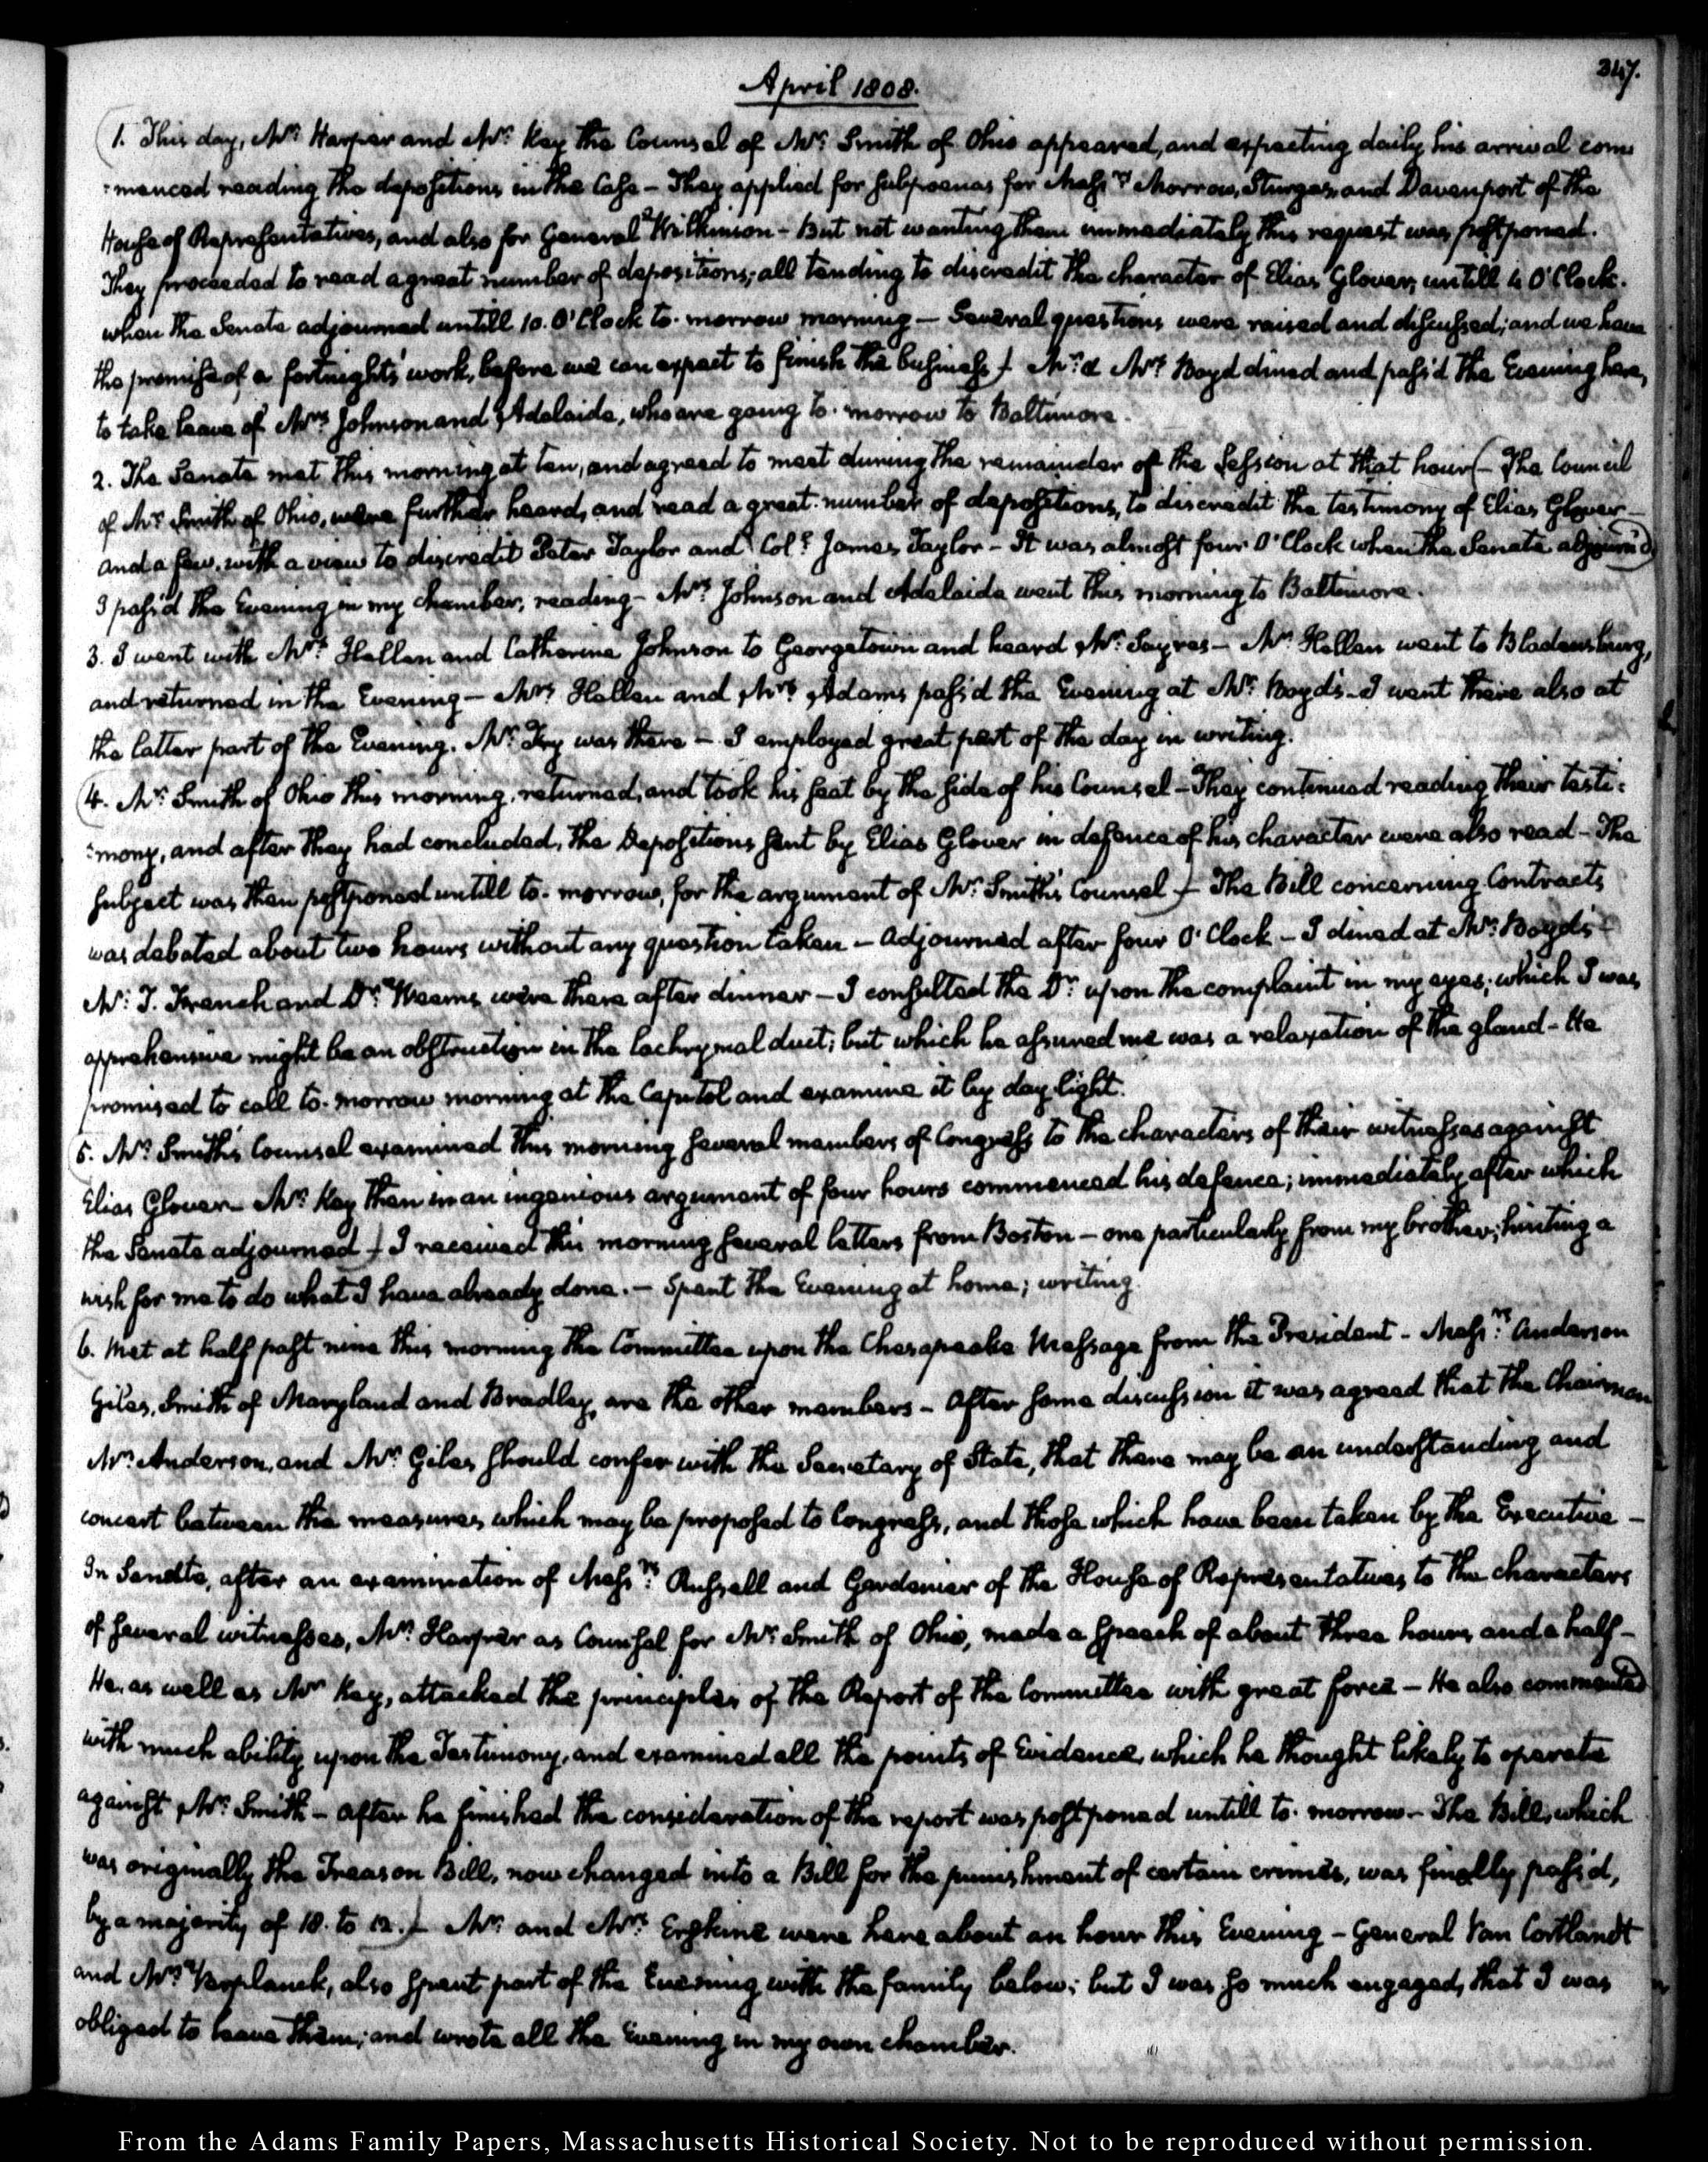 347.
April 1808.
1. This day, Mr. Harper and Mr. Key the Counsel of Mr. Smith of Ohio appeared, and expecting daily his arrival com
:menced reading the depositions in the Case - They applied for subpoenas for Messrs. Morrow, Sturges and Davenport of the
House of Representatives, and also for General Wilkinson - But not wanting them immediately this request was postponed.
They proceeded to read a great number of depositions; all tending to discredit the character of Elias Glover, untill 4 O'Clock.
when the Senate adjourned untill 10. O'Clock to-morrow morning - Several questions were raised and discussed; and we have
the promise of a fortnights' work, before we can expect to finish the business) - Mr. & Mrs. Boyd dined and pass'd the Evening here,
to take leave of Mrs. Johnson and Adelaide, who are going to-morrow to Baltimore.
2. The Senate met this morning at ten, and agreed to meet during the remainder of the Session at that hour (- The Council
of Mr. Smith of Ohio, were further heard, and read a great number of depositions, to discredit the testimony of Elias Glover -
and a few, with a view to discredit Peter Taylor and Coll. James Taylor - It was almost four O'Clock when the Senate adjourn'd)
I pass'd the Evening in my chamber, reading - Mrs. Johnson and Adelaide went this morning to Baltimore.
3. I went with Mrs. Hellen and Catherine Johnson to Georgetown and heard Mr. Sayres - Mr. Hellen went to Bladensburg,
and returned in the Evening - Mrs. Hellen and Mrs. Adams pass'd the Evening at Mr. Boyd's - I went there also at
the latter part of the Evening. Mr. Fry was there - I employed great part of the day in writing.
(4. Mr. Smith of Ohio this morning, returned, and took his seat by the side of his Counsel - They continued reading their testi:
:mony, and after they had concluded, the Depositions sent by Elias Glover in defence of his character were also read - The
subject was then postponed untill to-morrow, for the argument of Mr. Smith's Counsel) - The Bill concerning Contracts
was debated about two hours without any question taken - Adjourned after four O'Clock - I dined at Mr. Boyd's -
Mr. T. French and Dr. Weems were there after dinner - I consulted the Dr. upon the complaint in my eyes; which I was
apprehensive might be an obstruction in the lachrymal duct; but which he assured me was a relaxation of the gland - He
promised to call to-morrow morning at the Capitol and examine it by day light.
(5. Mr. Smith's Counsel examined this morning several members of Congress to the characters of their witnesses against
Elias Glover - Mr. Key then in an ingenious argument of four hours commenced his defence; immediately after which
the Senate adjourned) - I received this morning several letters from Boston - one particularly from my brother; hinting a
wish for me to do what I have already done. - Spent the Evening at home; writing.
(6. Met at half past nine this morning the Committee upon the Chesapeake Message from the President - Messrs. Anderson
Giles, Smith of Maryland and Bradley, are the other members - After some discussion it was agreed that the Chairman
Mr. Anderson, and Mr. Giles should confer with the Secretary of State, that there may be an understanding and
concert between the measures which may be proposed to Congress, and those which have been taken by the Executive -
In Senate, after an examination of Messrs. Russell and Gardenier of the House of Representatives to the characters
of several witnesses, Mr. Harper as Counsel for Mr. Smith of Ohio, made a speech of about three hours and a half -
He, as well as Mr. Key, attacked the principles of the Report of the Committee with great force - He also commented
with much ability upon the Testimony, and examined all the points of Evidence which he thought likely to operate
against Mr. Smith - After he finished the consideration of the report was postponed untill to-morrow - The Bill, which
was originally the Treason Bill, now changed into a Bill for the punishment of certain crimes, was finally pass'd,
by a majority of 18. to 12.) - Mr. and Mrs. Erskine were here about an hour this Evening - General Van Cortlandt
and Mr. Verplanck, also spent part of the Evening with the family below; but I was so much engaged, that I was
obliged to leave them; and wrote all the Evening in my own chamber.
From the Adams Family Papers, Massachusetts Historical Society. Not to be reproduced without permission.